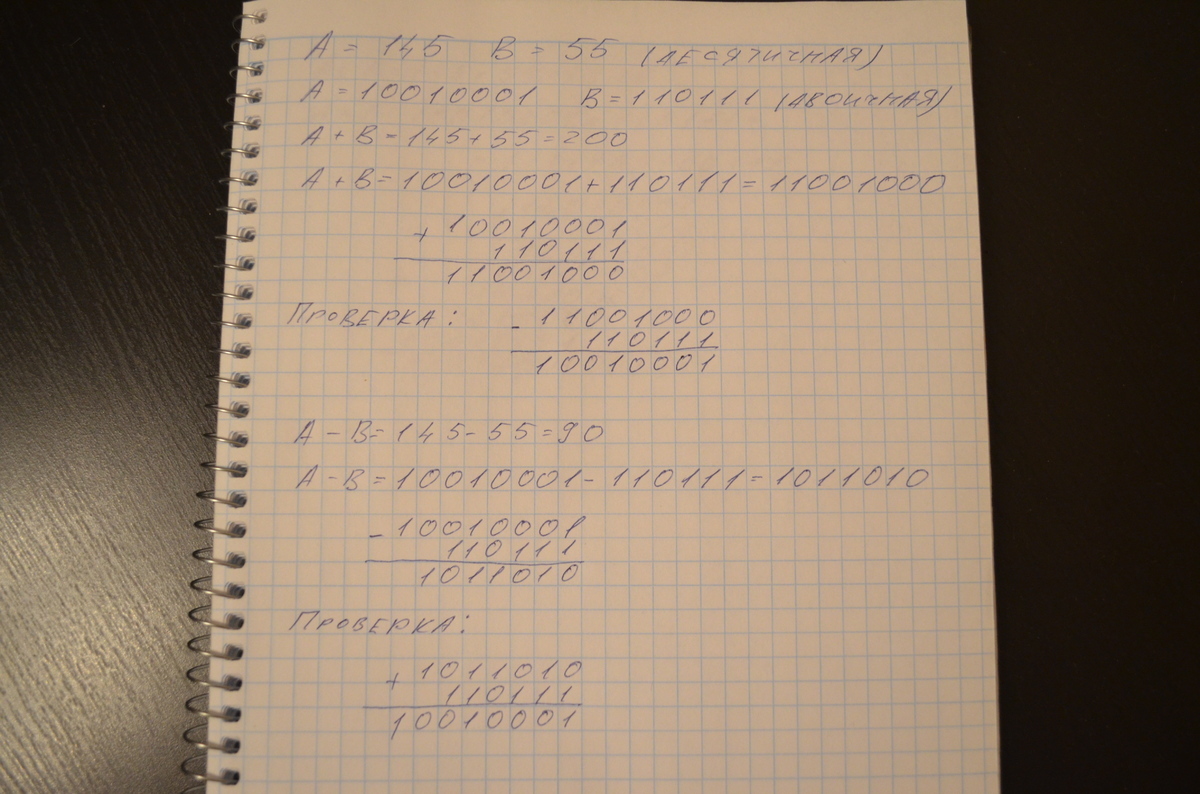 A = 145 B = 55 (ДЕСЯТИЧНАЯ)
A = 10010001 B = 110111 (ДВОИЧНАЯ)
A + B = 145 + 55 = 200
A + B = 10010001 + 110111 = 11001000
+ 10010001
110111
11001000
ПРОВЕРКА: - 11001000
110111
10010001
A - B = 145 - 55 = 90
A - B = 10010001 - 110111 = 1011010
- 10010001
110111
1011010
ПРОВЕРКА:
+ 1011010
110111
10010001